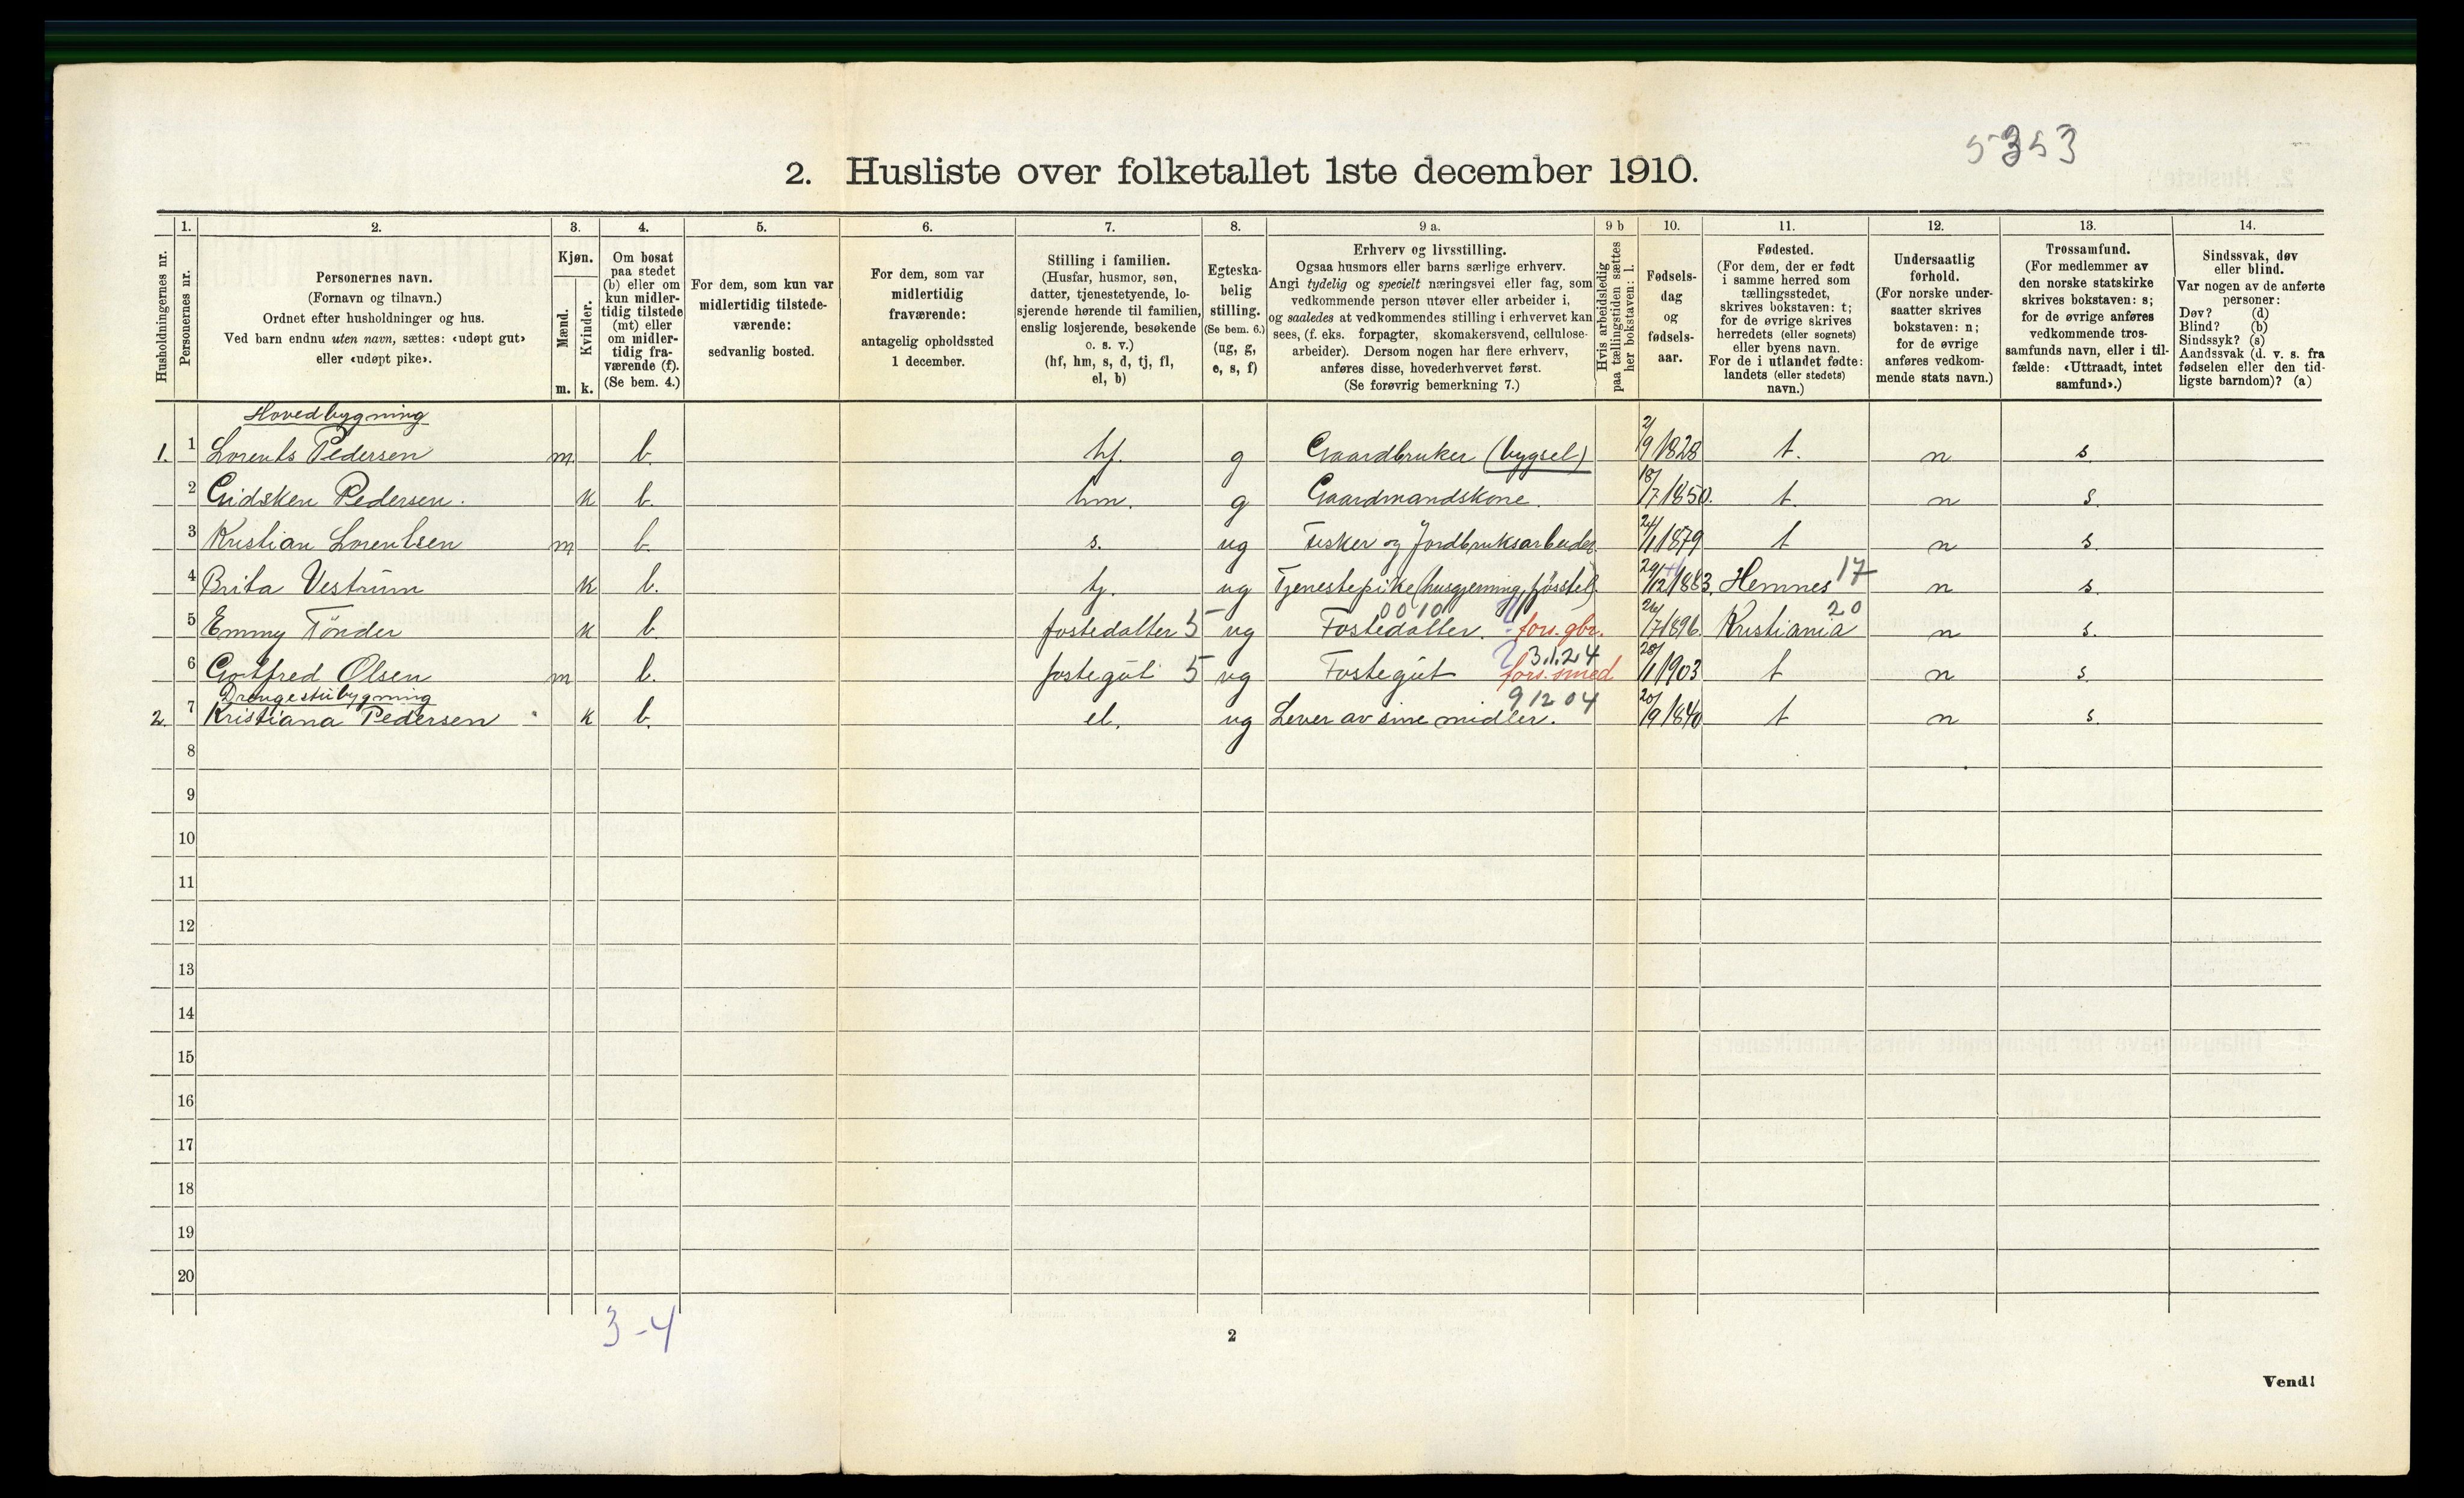 5353
2. Husliste over folketallet 1ste december 1910.
Husholdningernes nr.
1.
Personernes nr.
2.
Personernes navn.
(Fornavn og tilnavn.)
Ordnet efter husholdninger og hus.
Ved barn endnu uten navn, sættes: «udøpt gut»
eller «udøpt pike».
3.
Kjøn.
Mænd.
m.
Kvinder.
k.
4.
Om bosat
paa stedet
(b) eller om
kun midler-
tidig tilstede
(mt) eller
om midler-
tidig fra-
værende (f).
(Se bem. 4.)
5.
For dem, som kun var
midlertidig tilstede-
værende:
sedvanlig bosted.
6.
For dem, som var
midlertidig
fraværende:
antagelig opholdssted
1 december.
7.
Stilling i familien.
(Husfar, husmor, søn,
datter, tjenestetyende, lo-
sjerende hørende til familien,
enslig losjerende, besøkende
o. s. v.)
(hf, hm, s, d, tj, fl,
el, b)
8.
Egteska-
belig
stilling.
(Se bem. 6.)
(ug, g,
e, s, f)
9 a.
Erhverv og livsstilling.
Ogsaa husmors eller barns særlige erhverv.
Angi tydelig og specielt næringsvei eller fag, som
vedkommende person utøver eller arbeider i,
og saaledes at vedkommendes stilling i erhvervet kan
sees, (f. eks. forpagter, skomakersvend, cellulose-
arbeider). Dersom nogen har flere erhverv,
anføres disse, hovederhvervet først.
(Se forøvrig bemerkning 7.)
9 b
Hvis arbeidsledig
paa tællingstiden sættes
her bokstaven: l.
10.
Fødsels-
dag
og
fødsels-
aar.
11.
Fødested.
(For dem, der er født
i samme herred som
tællingsstedet,
skrives bokstaven: t;
for de øvrige skrives
herredets (eller sognets)
eller byens navn.
For de i utlandet fødte:
landets (eller stedets)
navn.)
12.
Undersaatlig
forhold.
(For norske under-
saatter skrives
bokstaven: n;
for de øvrige
anføres vedkom-
mende stats navn.)
13.
Trossamfund.
(For medlemmer av
den norske statskirke
skrives bokstaven: s;
for de øvrige anføres
vedkommende tros-
samfunds navn, eller i til-
fælde: «Uttraadt, intet
samfund».)
14.
Sindssvak, døv
eller blind.
Var nogen av de anførte
personer:
Døv? (d)
Blind? (b)
Sindssyk? (s)
Aandssvak (d. v. s. fra
fødselen eller den tid-
ligste barndom)? (a)
Hovedbygning
1. 1 Lorents Pedersen m b. hf. g Gaardbruker (bygsel) 2/9 1828 t. n s.
2 Gidsken Pedersen. k b. hm. g Gaardmandskone. 18/7 1850. t. n s.
3 Kristian Lorentsen m b. s. ug Fisker og Jordbruksarbeider. 24/1 1879 t n s.
4 Brita Vestrum k b. tj. ug Tjenestepike (husgjerning, fjösstel). 29/12 1883. Hemnes 17 n s.
0010
5 Emmy Tönder k b. fostedatter 5 ug Fostedatter. fors. gbr. 24/7 1896. Kristiania 20 n s.
3.1.24
6 Gotfred Olsen m b. fostegut 5 ug Fostegut fors. smed 28/1 1903 t n s.
Drengestubygning
9 12 04
2. 7 Kristiana Pedersen k b. el. ug Lever av sine midler. 20/9 1840 t n s.
8
9
10
11
12
13
14
15
16
17
18
19
20
3-4
2
Vend!